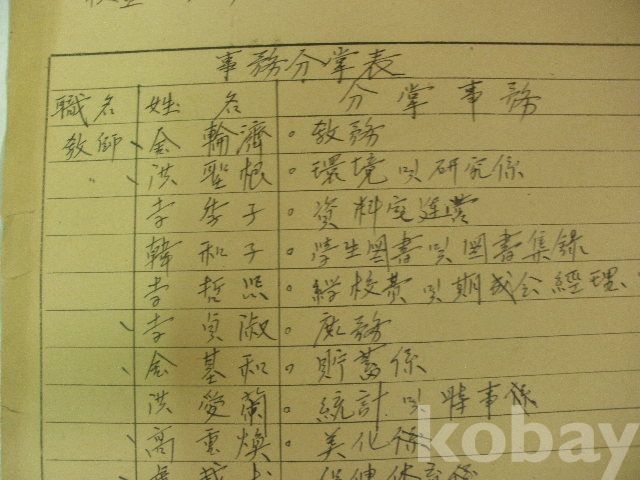 事務分掌表
職名 姓名 分掌事務
敎師 金輪濟 敎務
〃 洪聖根 環境 및 研究係
李 子 資料室運営
韓和子 学生図書 및 図書集錄
李哲 校費 및 期成会 經理
李貞淑 庶務
金基和 貯蓄係
洪愛蘭 統計 및 時事係
高重煥 美化係
kobay